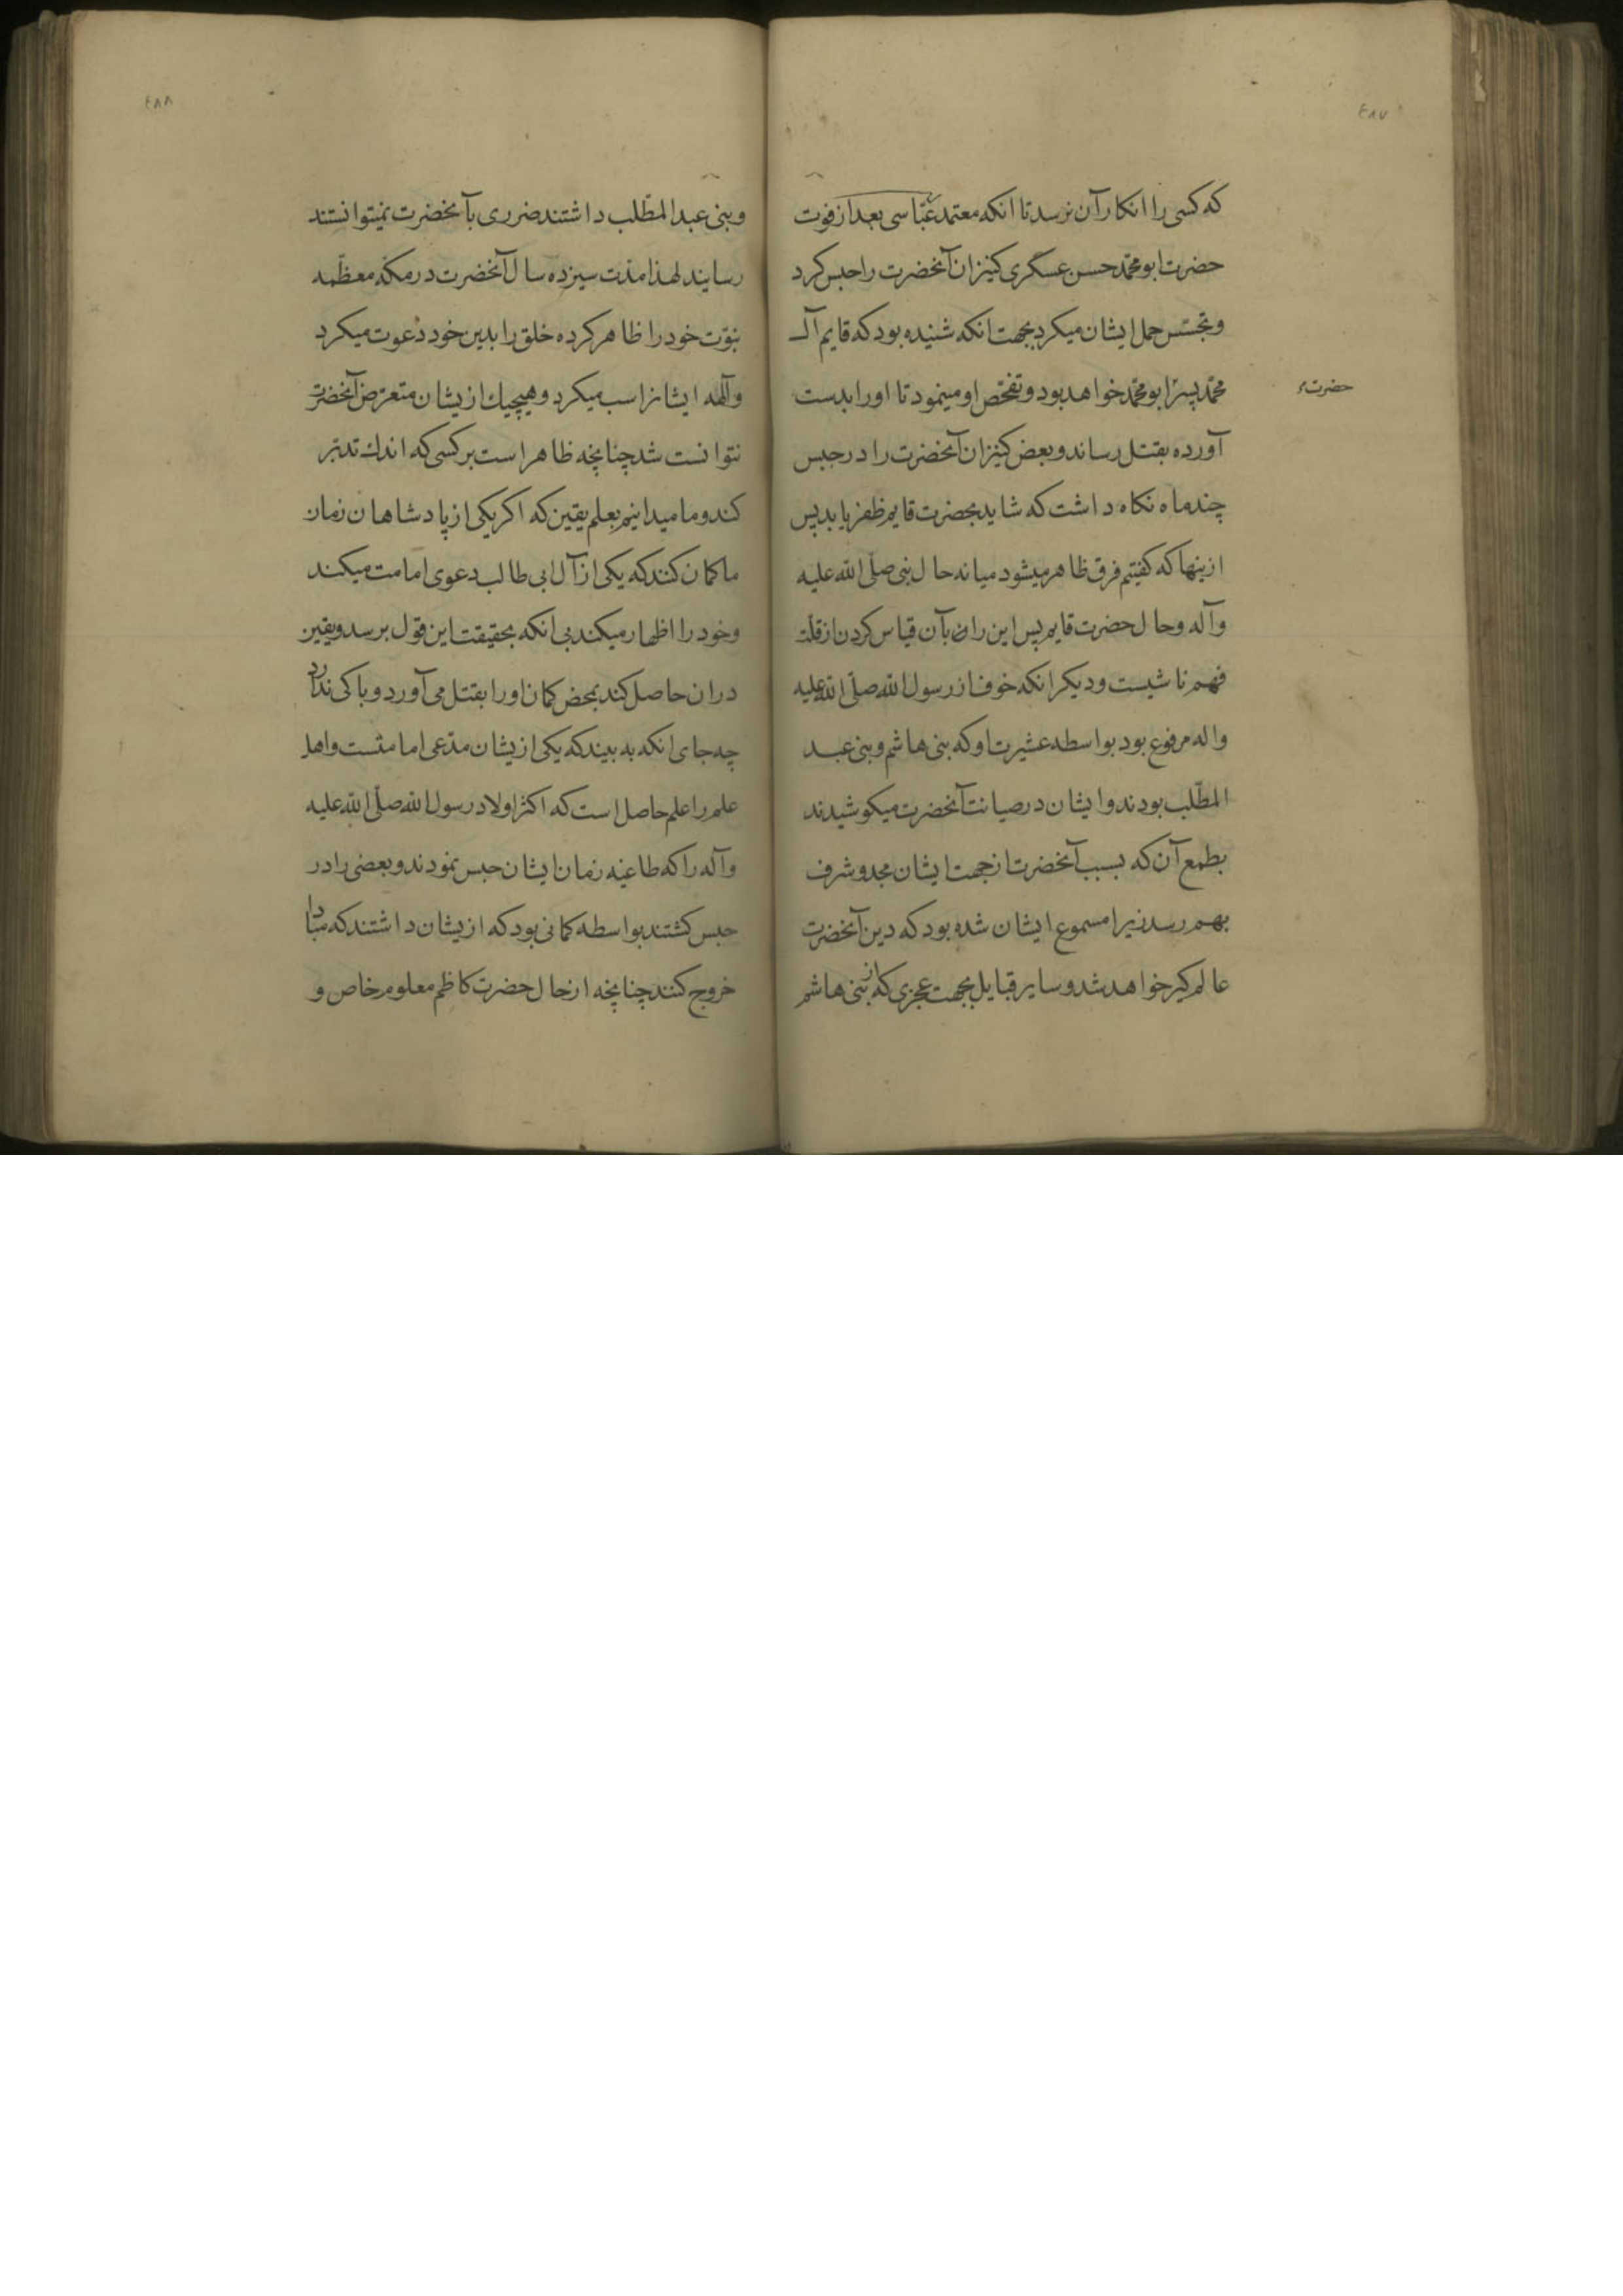 ٤٨٧
که کسی را انکار آن نرسد تا انکه معتمد عبّاسی بعد از فوت
حضرت ابو محمّد حسن عسگری کنیزان آنحضرت را حبس کرد
و تجسّس حمل ایشان میکرد بجهت انکه شنیده بود که قایم آل
محمّد پسر ابو محمّد خواهد بود و تفحّص او مینمود تا او را بدست
حضرت
آورده بقتل رساند و بعض کنیزان آنحضرت را در حبس
چند ماه نکاه داشت که شاید بحضرت قایم ظفر یابد پس
ازینها که کفتیم فرق ظاهر میشود میانه حال نبی صلّی الله علیه
وآله وحال حضرت قایم پس این را بآن قیاس کردن از قلّت
فهم ناشیست و دیکر انکه خوف از رسول الله صلّی الله علیه
واله مرفوع بود بواسطه عشیرت او که بنی هاشم و بنی عبد
المطّلب بودند و ایشان در صیانت آنحضرت میکوشیدند
بطمع آن که بسبب آنحضرت از جهت ایشان مجد و شرف
بهم رسد زیرا مسموع ایشان شده بود که دین آنحضرت
عالم کیر خواهد شد و سایر قبایل بجهت عجزی که از بنی هاشم
٤٨٨
و بنی عبد المطّلب داشتند ضرری بآنحضرت نمیتوانستند
رسانید لهذا مدّت سیزده سال آنحضرت در مکّه معظّمه
نبوّت خود را ظاهر کرده خلق را بدین خود دعوت میکرد
وآلهه ایشانرا سب میکرد و هیچیك ازیشان متعرّض آنحضرت
نتوانست شد چنانچه ظاهر است بر کسی که اندك تدبّر
کند و ما میدانیم بعلم یقین که اکر یکی از پادشاهان زمان
ما کمان کند که یکی از آل ابی طالب دعوی امامت میکند
وخود را اظهار میکند بی انکه بحقیقت این قول برسد و یقین
دران حاصل کند بمحض کمان او را بقتل می آورد و باکی ندارد
چه جای انکه به بیند که یکی ازیشان مدّعی امامتست واهل
علم را علم حاصل است که اکثر اولاد رسول الله صلّی الله علیه
وآله را که طاغیه زمان ایشان حبس نمودند و بعضی را در
حبس کشتند بواسطه کمانی بود که ازیشان داشتند که مبادا
خروج کنند چنانچه از حال حضرت کاظم معلوم خاص و